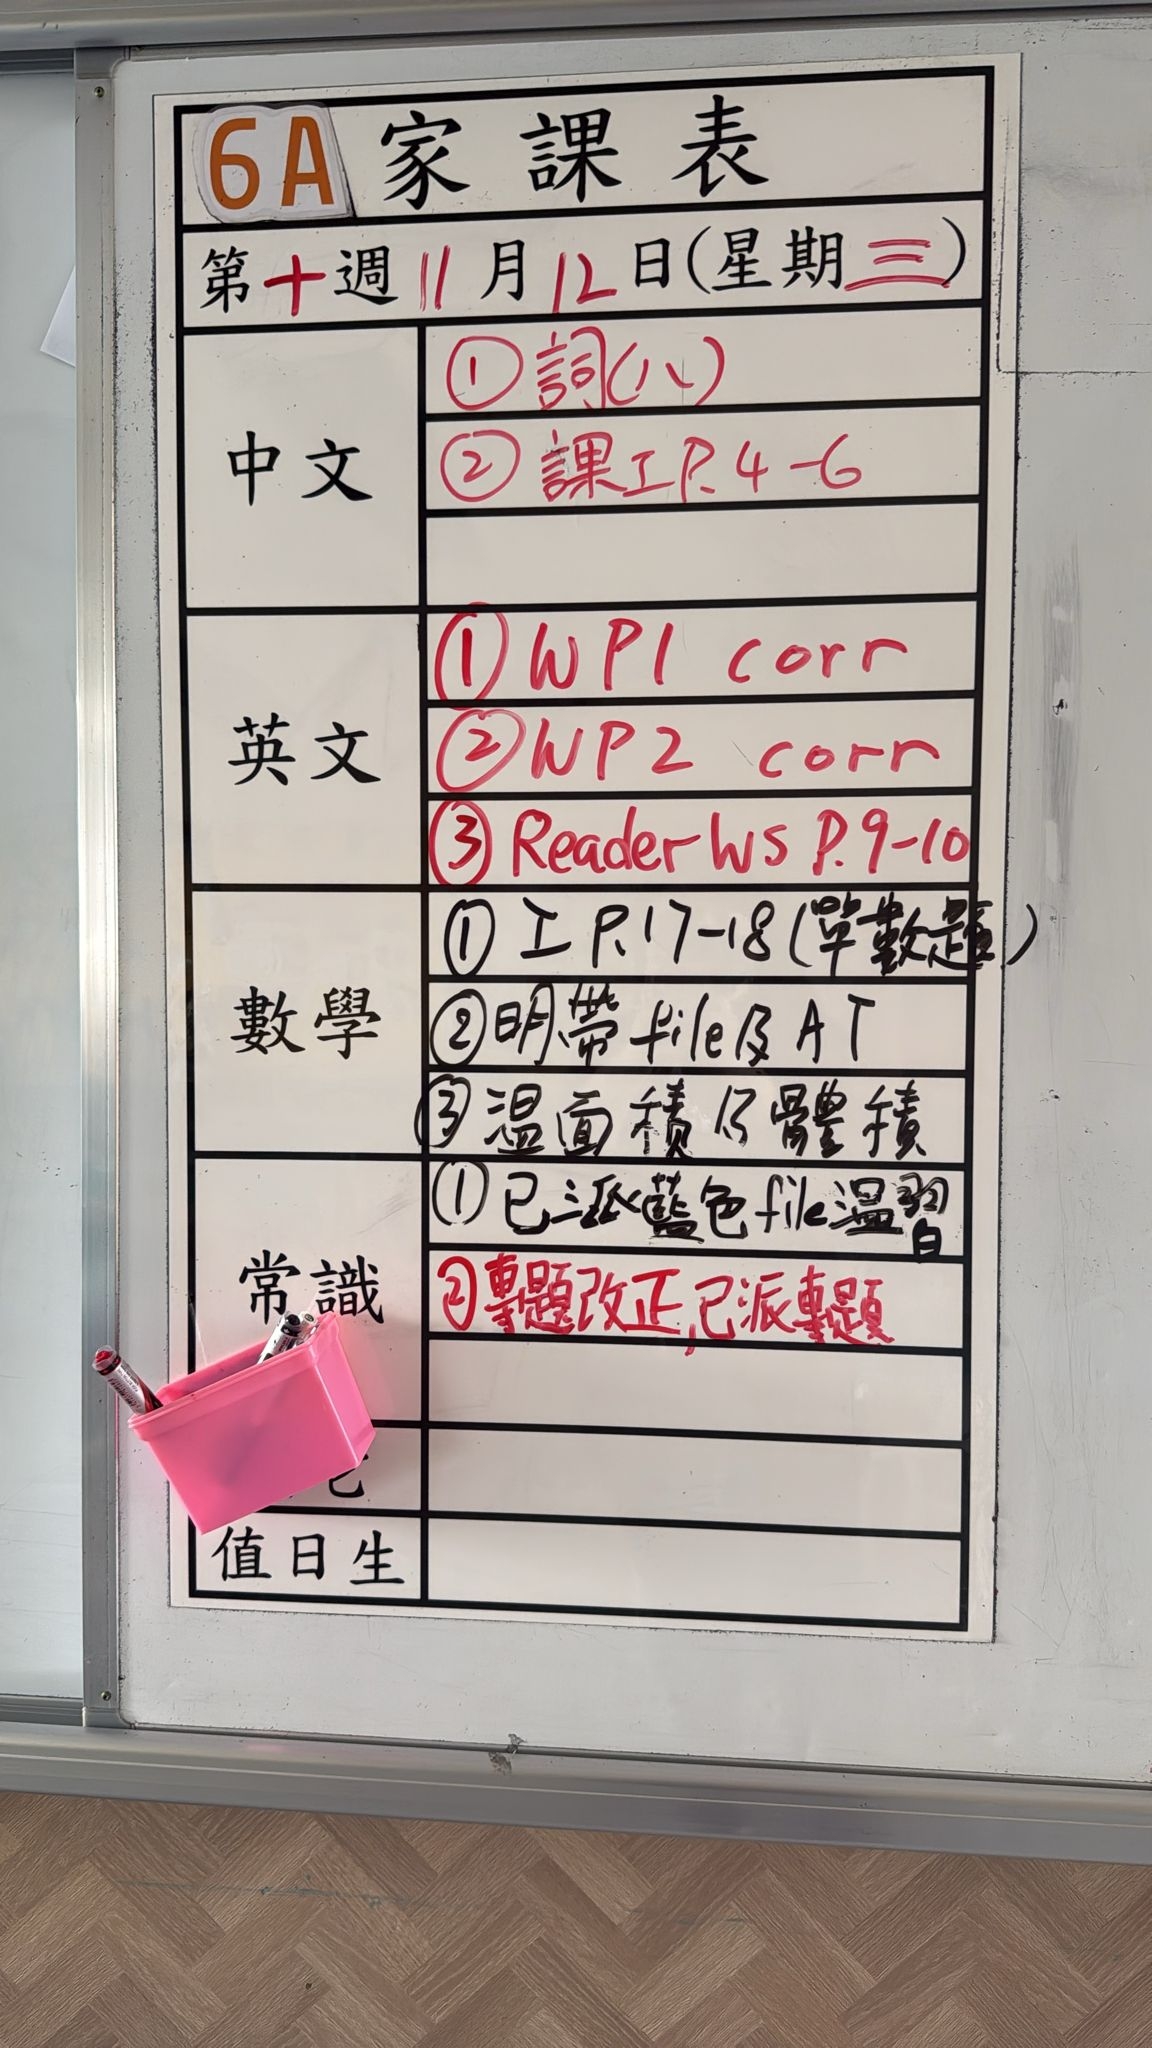 6A 家課表
第十週 11月12日(星期三)
中文
① 詞(八)
② 課工P.4-6
英文
① WP1 corr
② WP2 corr
③ Reader WS P.9-10
數學
① 工P.17-18(單數題)
② 明帶file及AT
③ 温面積及體積
常識
① 已派藍色file温習
② 專題改正,已派專題
值日生